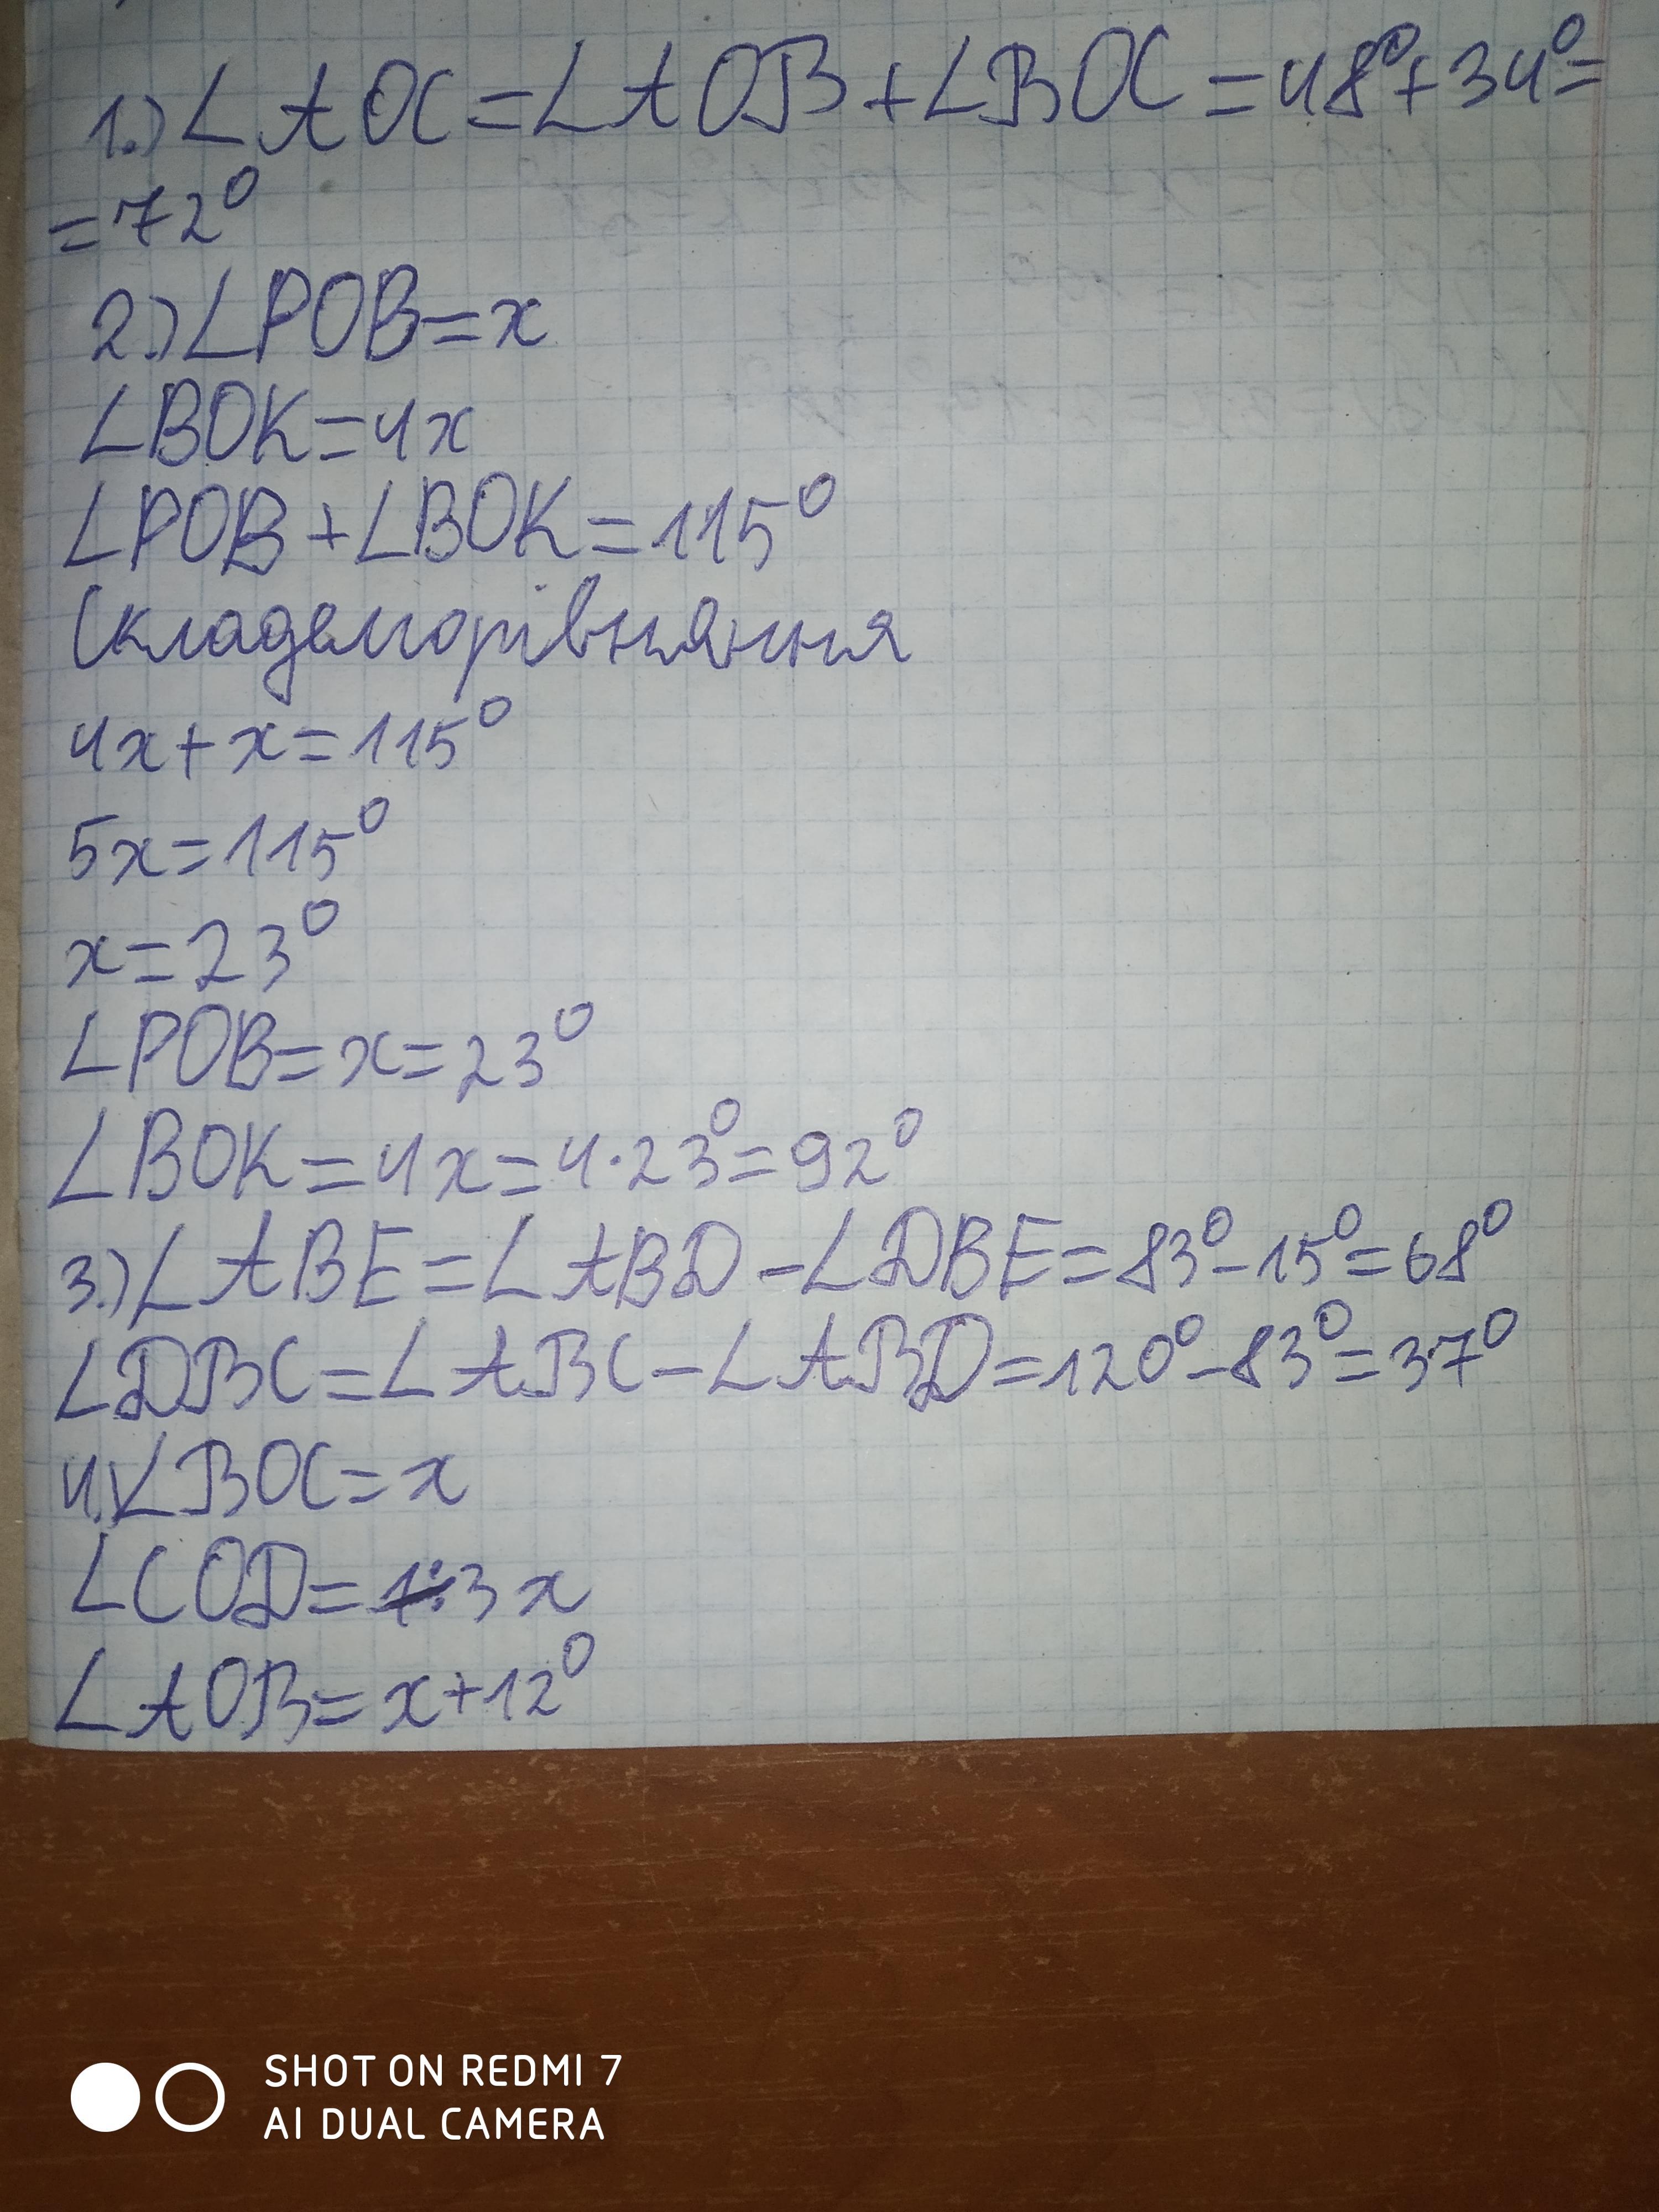 1.) ∠AOC = ∠AOB + ∠BOC = 48° + 34° =
= 72°
2.) ∠POB = x
∠BOK = 4x
∠POB + ∠BOK = 115°
Складемо рівняння
4x + x = 115°
5x = 115°
x = 23°
∠POB = x = 23°
∠BOK = 4x = 4·23° = 92°
3.) ∠ABE = ∠ABD - ∠DBE = 83° - 15° = 68°
∠DBC = ∠ABC - ∠ABD = 120° - 83° = 37°
4.) ∠BOC = x
∠COD = 3x
∠AOB = x + 12°
SHOT ON REDMI 7
AI DUAL CAMERA